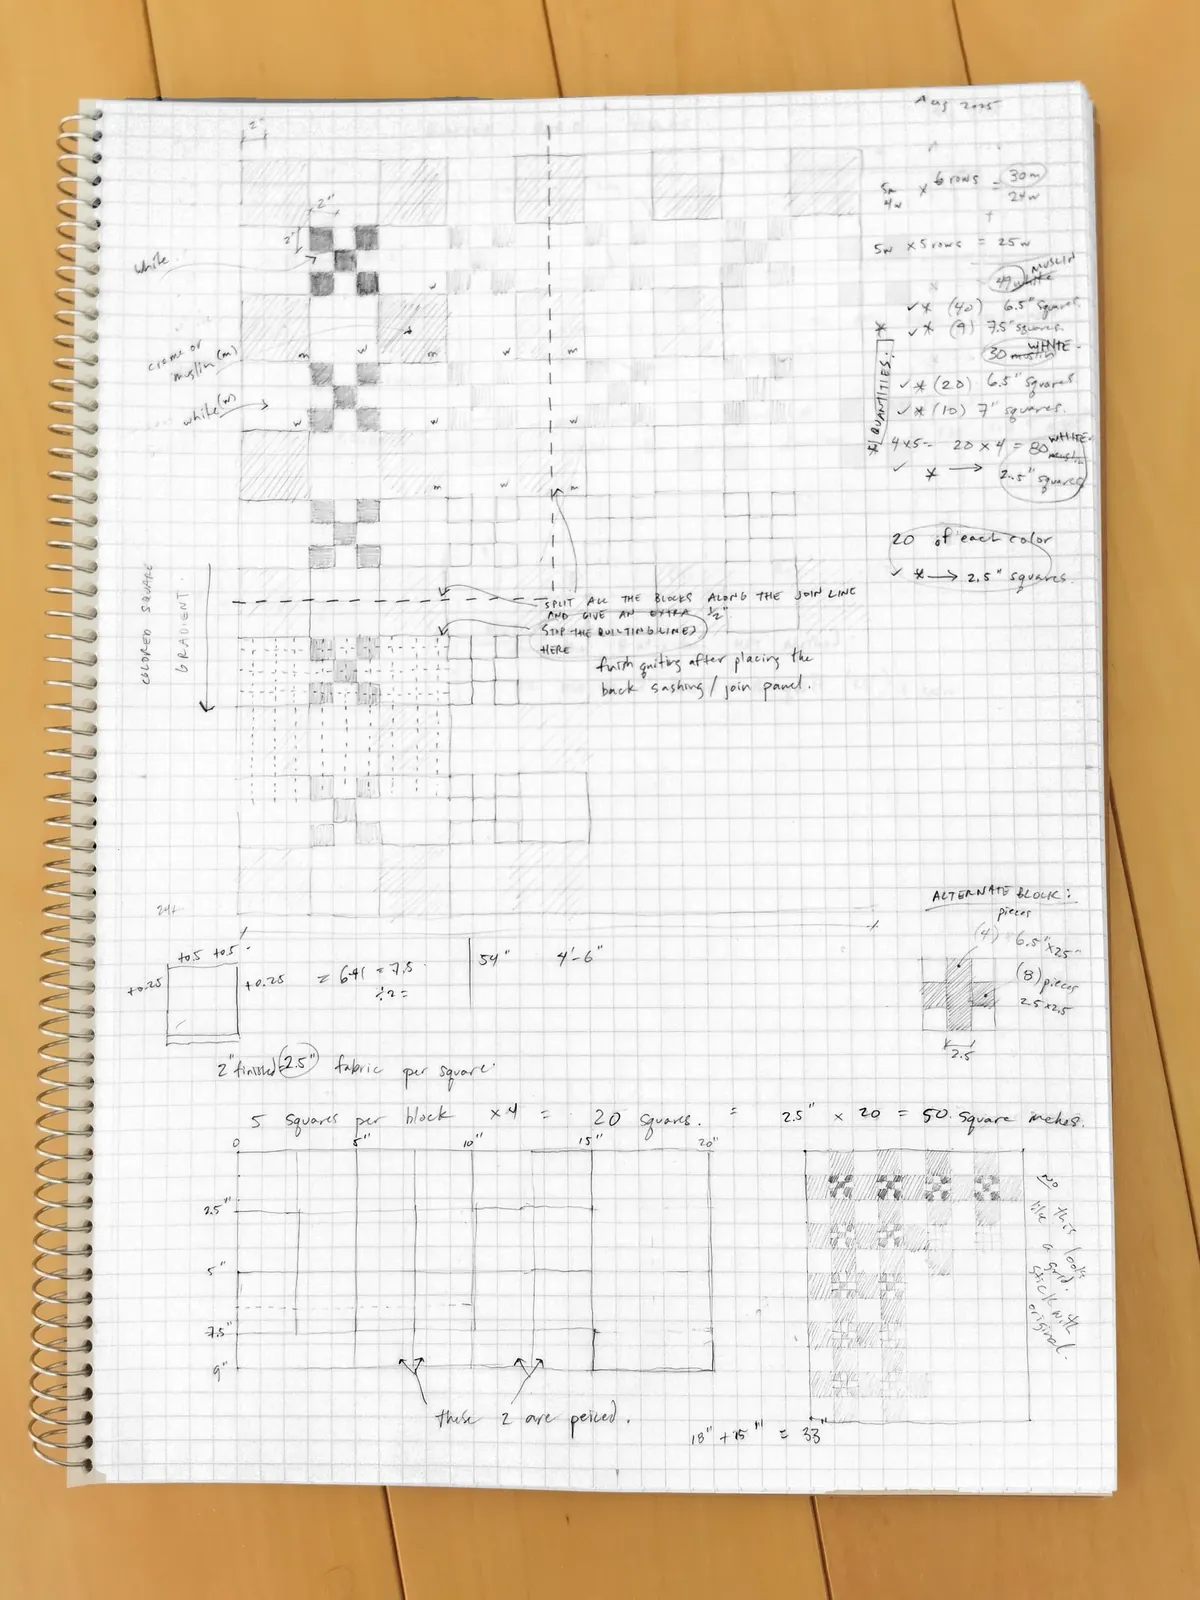 Aug 2025
2"
2"
2"
white
w
creme or
muslin (m)
m w m w m
white (w)
w w w
m w m
COLORED SQUARE
GRADIENT
SPLIT ALL THE BLOCKS ALONG THE JOIN LINE
AND GIVE AN EXTRA 1/2"
STOP THE QUILTING LINES
HERE
finish quilting after placing the
back sashing / join panel.
5m
4w
x 6 rows = 30m
24w
+
5w x 5 rows = 25w
49 white MUSLIN
✓ * (40) 6.5" squares.
✓ * (9) 7.5" squares.
30 muslin WHITE
✓ * (20) 6.5" squares
✓ * (10) 7" squares.
* QUANTITIES: *
4x5= 20 x 4 = 80 WHITE
muslin
✓ * → 2.5" squares
20 of each color
✓ * → 2.5" squares.
ALTERNATE BLOCK:
pieces
(4) 6.5"x25"
(8) pieces
2.5 x 2.5
2.5
+0.5 +0.5
+0.25 +0.25
= 6+1 = 7.5
÷2=
54" 4'-6"
2" finished = 2.5" fabric per square.
5 squares per block x 4 = 20 squares. = 2.5" x 20 = 50 square inches.
0 5" 10" 15" 20"
2.5"
5"
7.5"
9"
these 2 are peiced.
No
like this looks
a grid.
stick with
original.
18" + 15" = 33"